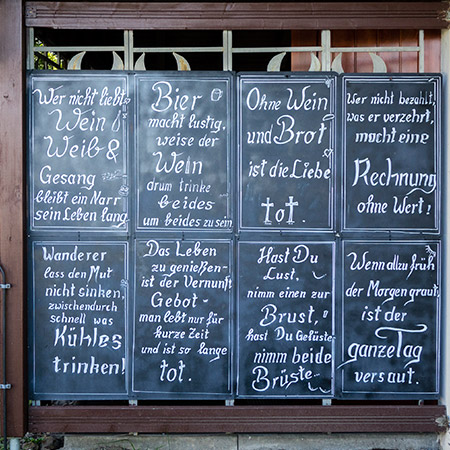 Wer nicht liebt
Wein
Weib &
Gesang
bleibt ein Narr
sein Leben lang
Bier
macht lustig,
weise der
Wein
drum trinke
beides
um beides zu sein.
Ohne Wein
und Brot
ist die Liebe
tot.
Wer nicht bezahlt,
was er verzehrt,
macht eine
Rechnung
ohne Wert!
Wanderer
lass den Mut
nicht sinken,
zwischendurch
schnell was
Kühles
trinken!
Das Leben
zu genießen-
ist der Vernunft
Gebot-
man lebt nur für
kurze Zeit
und ist so lange
tot.
Hast Du
Lust,
nimm einen zur
Brust,
hast Du Gelüste
nimm beide
Brüste
Wenn allzu früh
der Morgen graut,
ist der
ganze Tag
versaut.